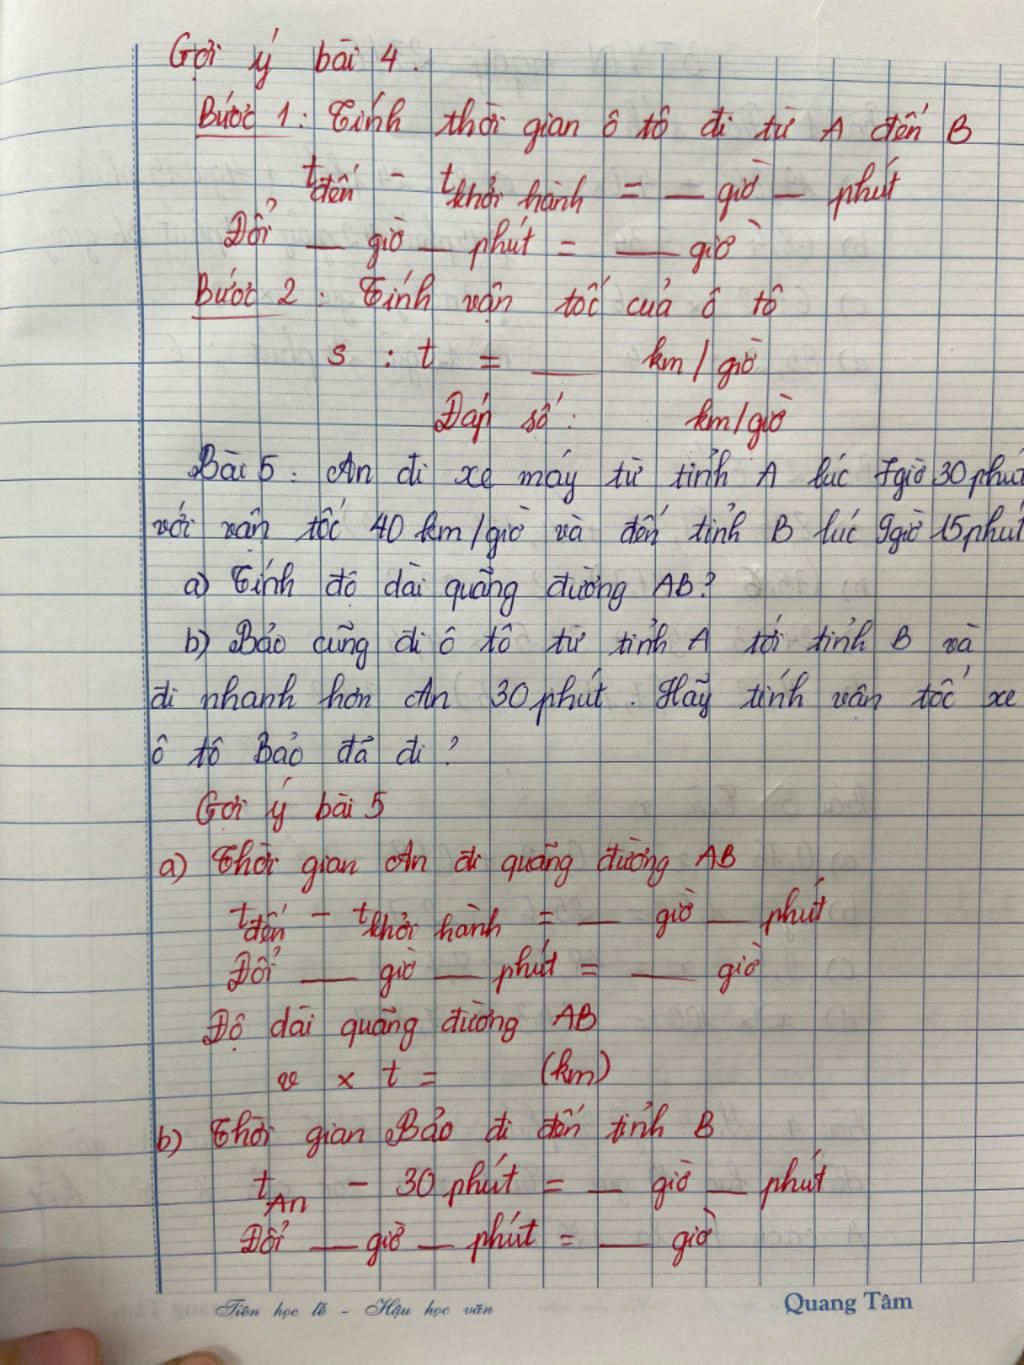 Gợi ý bài 4.
Bước 1: Tính thời gian ô tô đi từ A đến B
t đến - t khởi hành = __ giờ __ phút
Đổi __ giờ __ phút = __ giờ
Bước 2: Tính vận tốc của ô tô
s : t = __ km/giờ
Đáp số: km/giờ
Bài 5: An đi xe máy từ tỉnh A lúc 7giờ 30 phút
với vận tốc 40 km/giờ và đến tỉnh B lúc 9giờ 15phút
a) Tính độ dài quãng đường AB?
b) Bảo cũng đi ô tô từ tỉnh A tới tỉnh B và
đi nhanh hơn An 30 phút. Hãy tính vận tốc xe
ô tô Bảo đã đi?
Gợi ý bài 5
a) Thời gian An đi quãng đường AB
t đến - t khởi hành = __ giờ __ phút
Đổi __ giờ __ phút = __ giờ
Độ dài quãng đường AB
v x t = (km)
b) Thời gian Bảo đi đến tỉnh B
t An - 30 phút = __ giờ __ phút
Đổi __ giờ __ phút = __ giờ
Tiên học lễ - Hậu học văn Quang Tâm